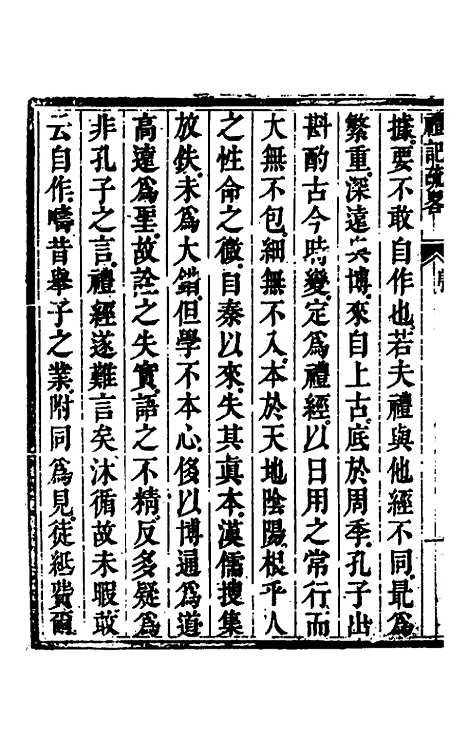 禮記疏畧 序 一
據要不敢自作也若夫禮與他經不同最爲
繁重深遠奥博來自上古底於周季孔子出
斟酌古今時變定爲禮經以日用之常行而
大無不包細無不入本於天地陰陽根乎人
之性命之微自秦以來失其眞本漢儒搜集
放鉄未爲大錯但學不本心後以博通爲道
高遠爲聖故詮之失實語之不精反多疑爲
非孔子之言禮經遂難言矣沐循故未暇敢
云自作疇昔舉子之業附同爲見徒紙費爾